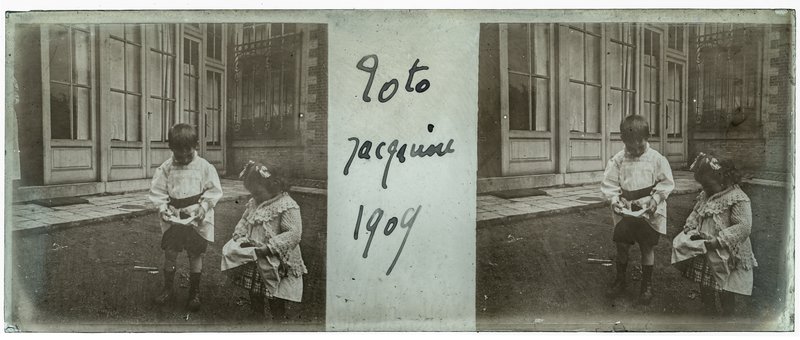 Toto
Jacqueline
1909